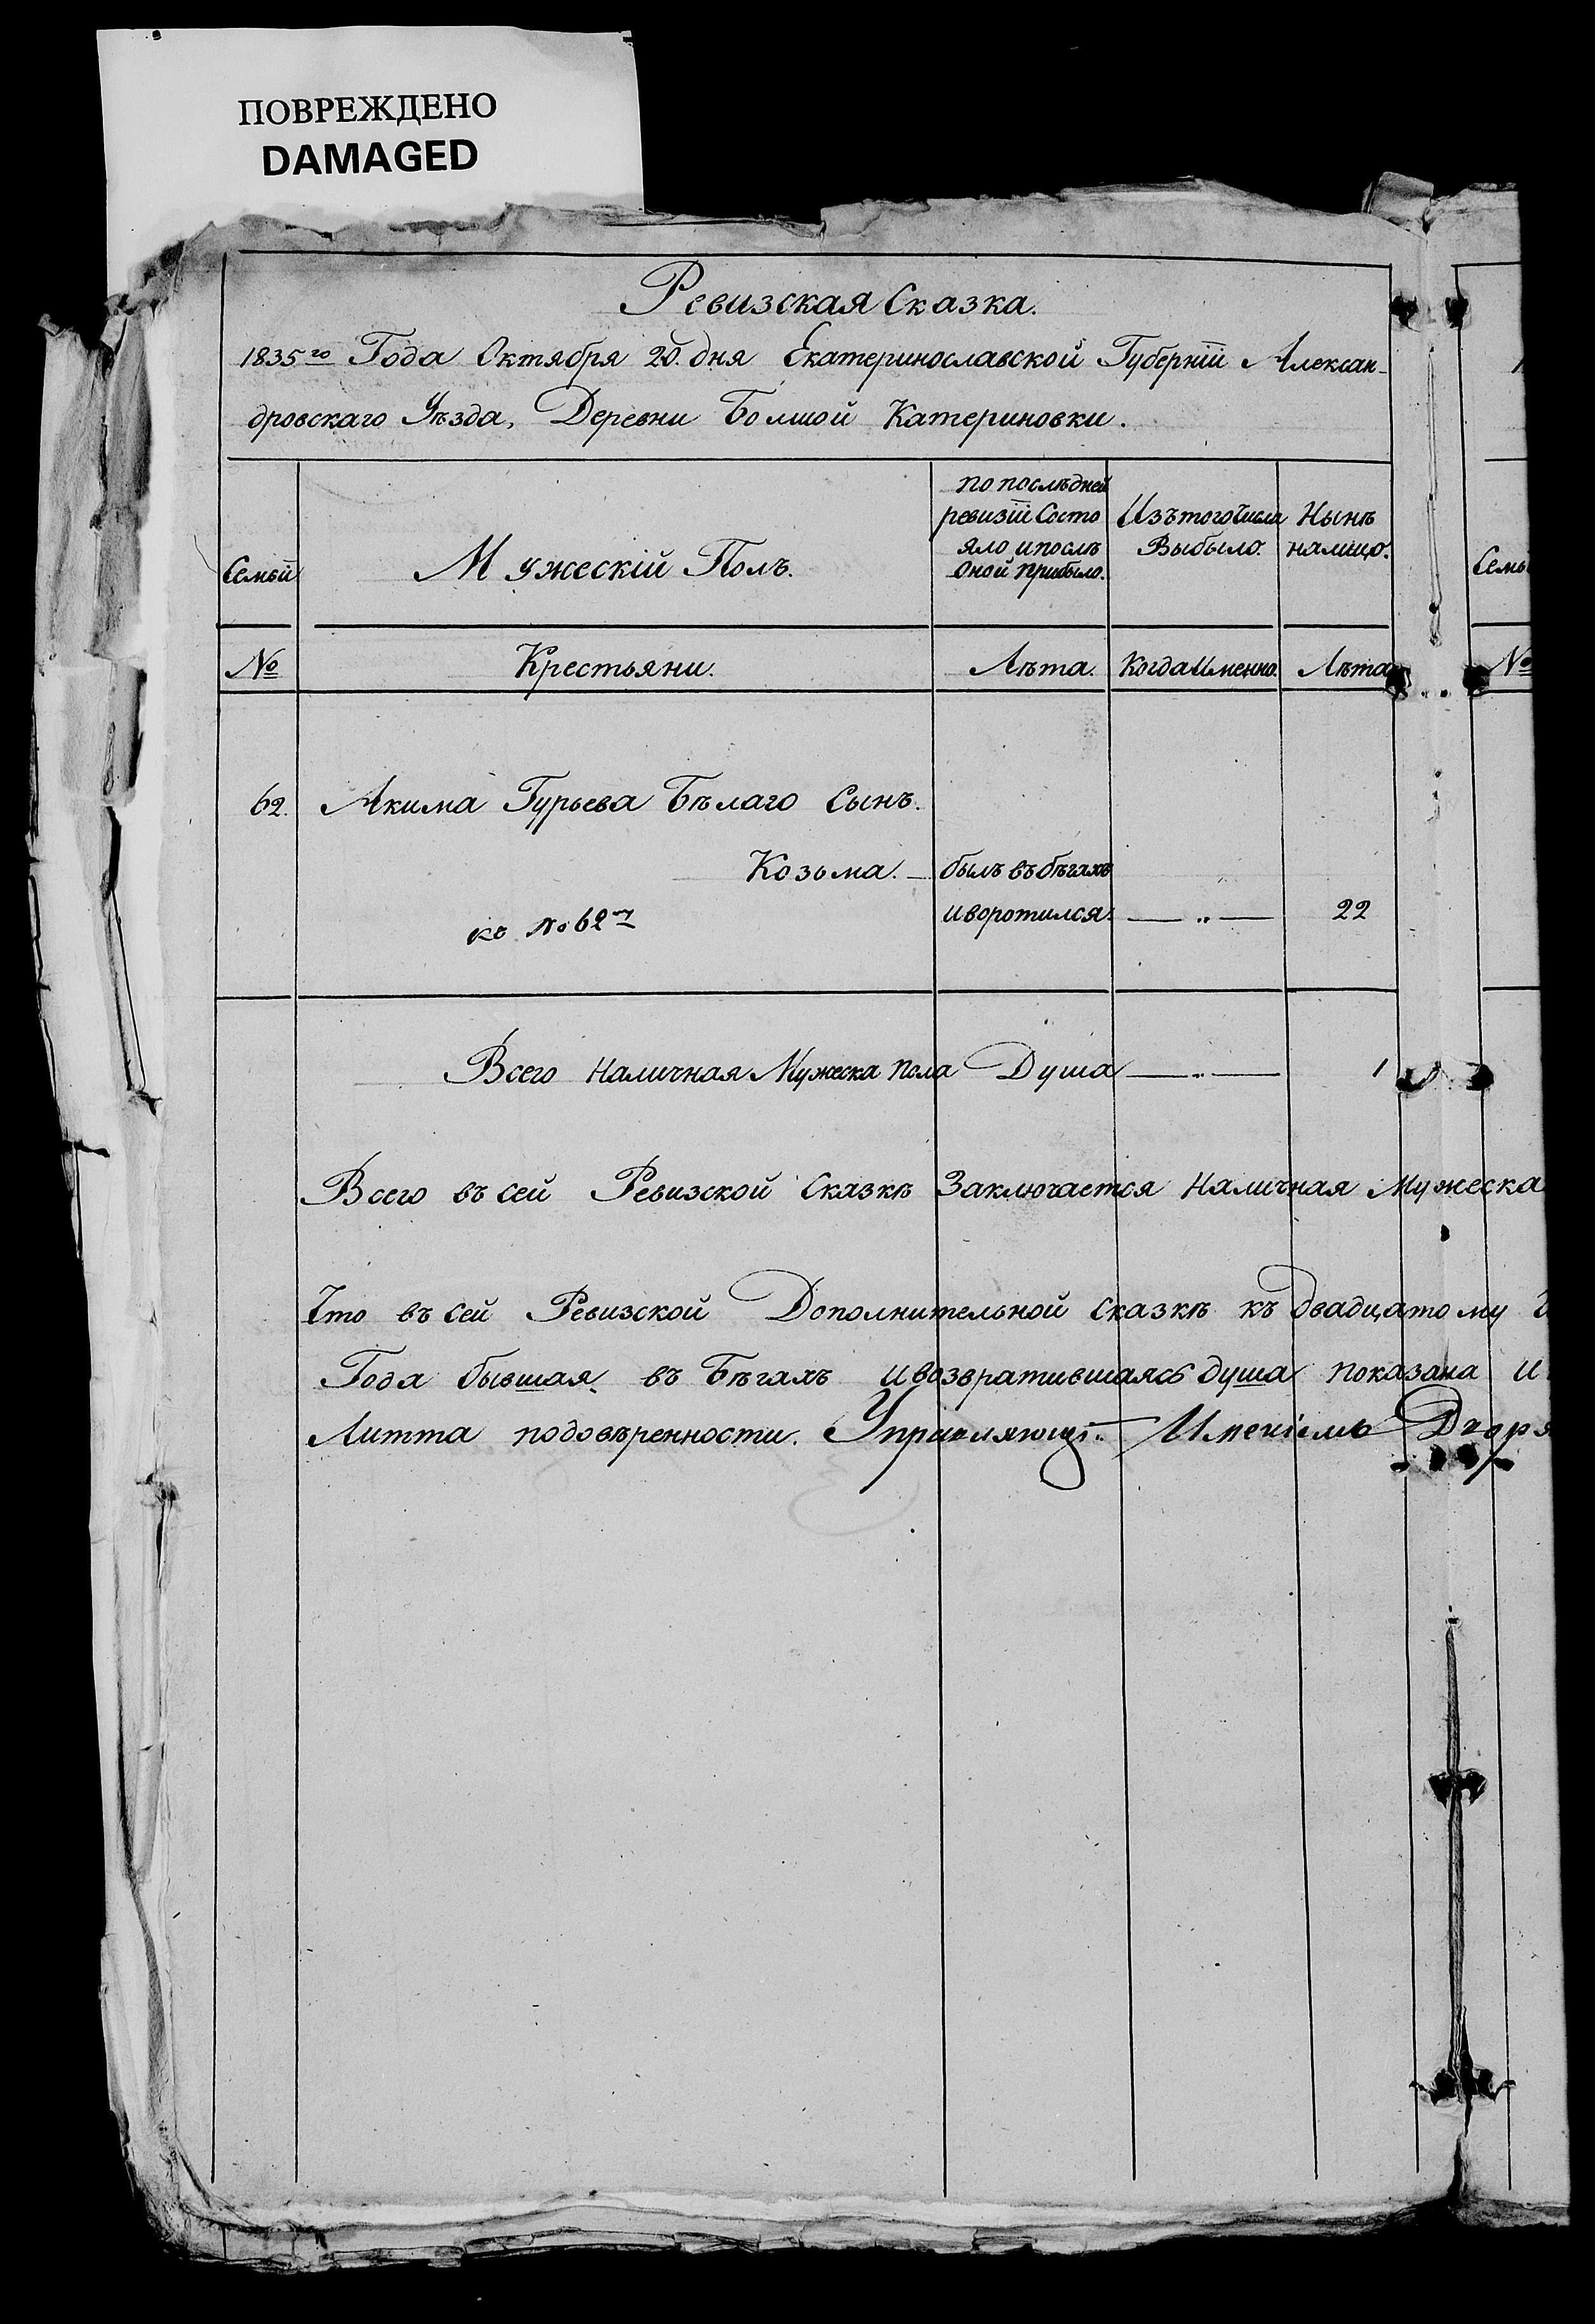 ПОВРЕЖДЕНО
DAMAGED
Ревизская Сказка.
1835го Года Октября 20. дня Екатеринославской Губерніи Алексан-
дровскаго Уѣзда, Деревни Болшой Катериновки.
Семьи
Мужескій Полъ.
по послѣдней
ревизіи Состо
яло и послѣ
Оной прибыло.
Изъ того числа
Выбыло.
Нынѣ
налицо.
Семьи
№
Крестьяни.
Лѣта.
Когда Именно.
Лѣта
№
62.
Акима Гурьева Бѣлаго Сынъ.
Козьма. — былъ въ бѣгахъ
и воротился. — „ — 22
къ № 62му
Всего Наличная Мужеска пола Душа — „ — 1
Всего въ сей Ревизской Сказкѣ Заключается Наличная Мужеска
Что въ сей Ревизской Дополнительной Сказкѣ къ двадцатому
Года бывшая въ Бѣгахъ и возвратившаясь душа показана и
Литта по довѣренности. Управляющій Имѣніемъ Дворя